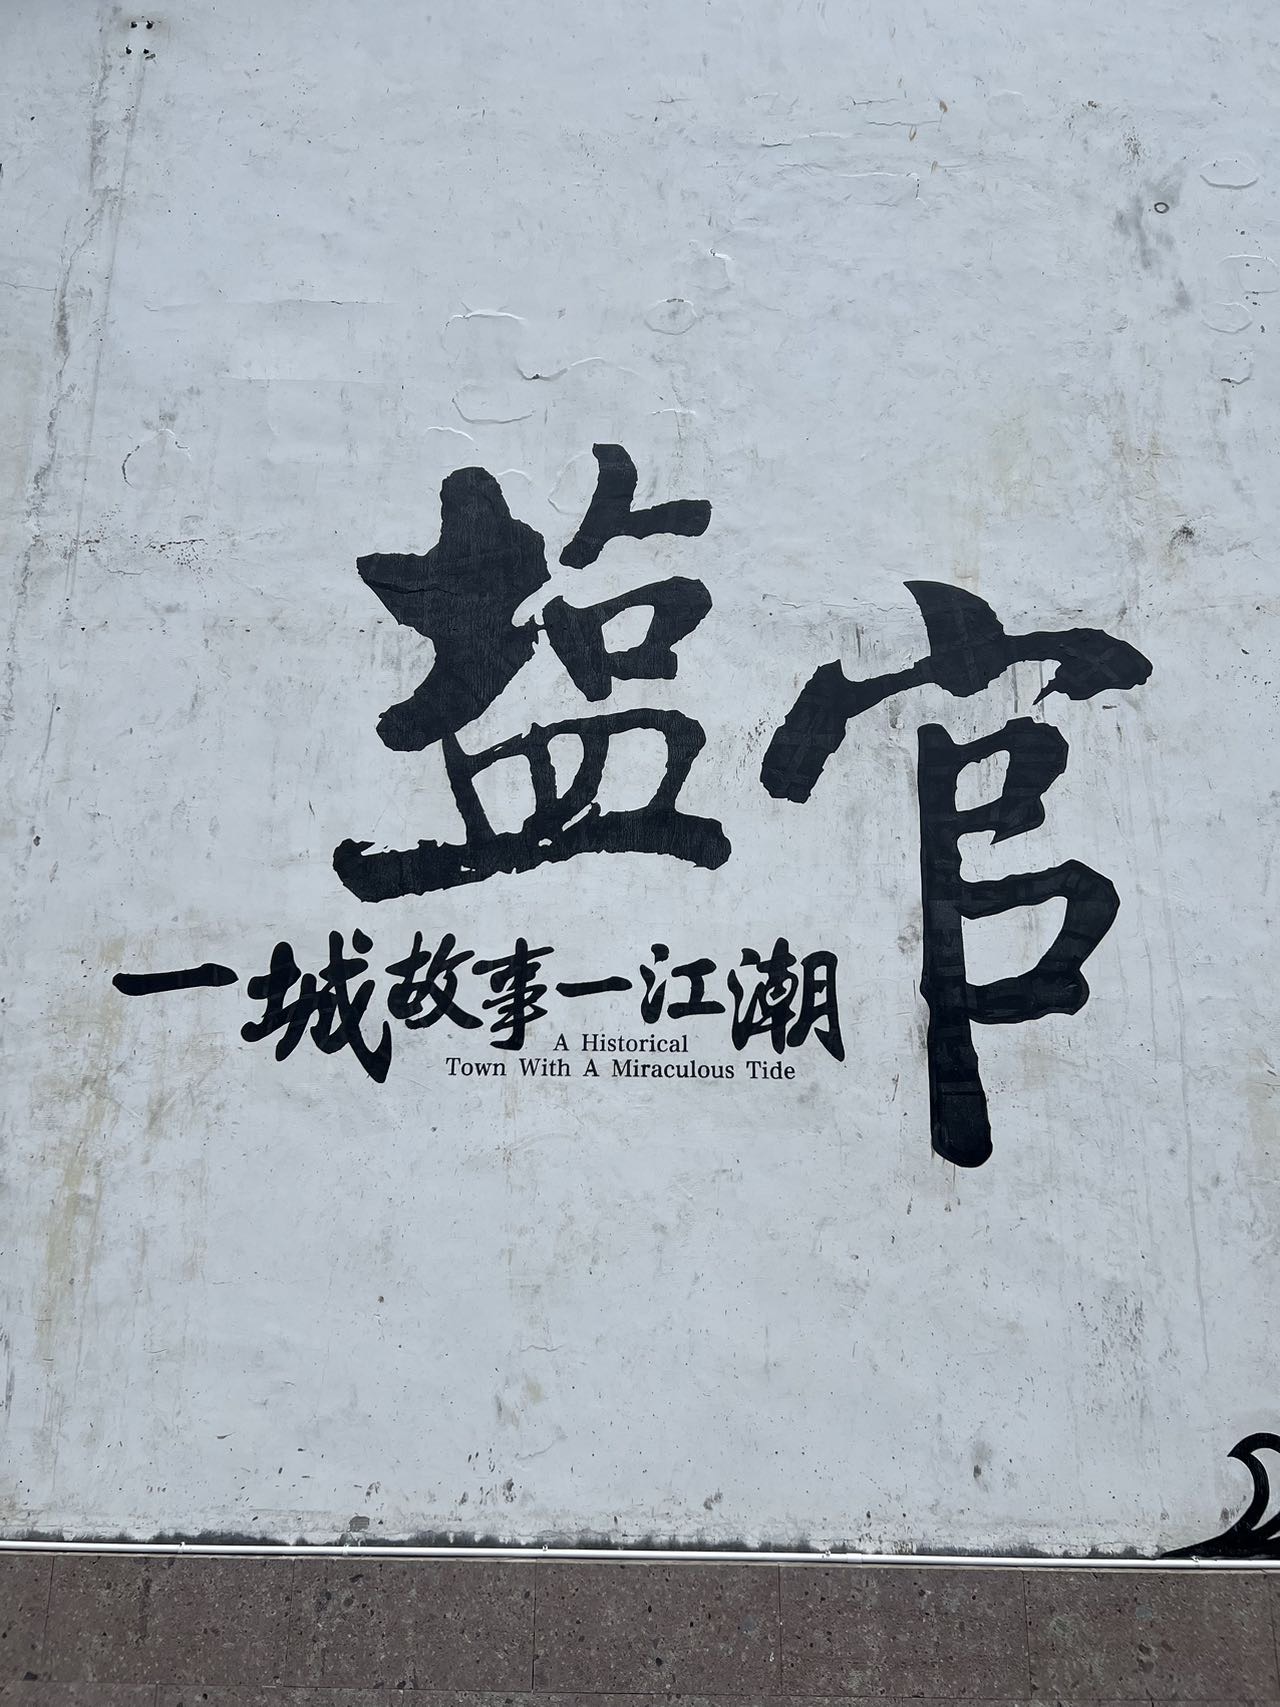 盐官
一城故事一江潮
A Historical
Town With A Miraculous Tide